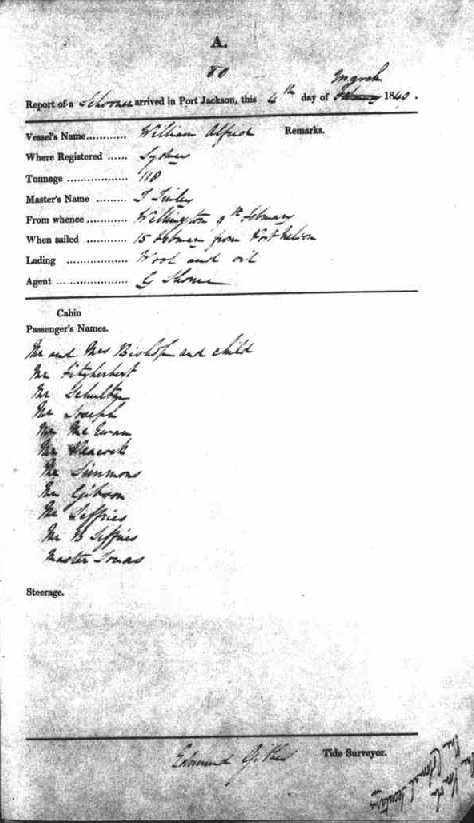 A.
80
March
Report of a Schooner arrived in Port Jackson, this 4th day of February 1843.
Vessel's Name............ William Alfred Remarks.
Where Registered ...... Sydney
Tonnage .................. 118
Master's Name ......... J Tinley
From whence............ Wellington 9th February
When sailed ............ 15 February from Port Nelson
Lading .................. Wool and oil
Agent ..................... G Thorne
Cabin
Passenger's Names.
Mr and Mrs Bishop and child
Mr Fitzherbert
Mr Schultze
Mr Joseph
Mr Mc Ewan
Mr Peacock
Mr Simmons
Mr Gibson
Mr Jeffries
Mr B Jeffries
Master Jonas
Steerage.
Edmund Tide Surveyor.